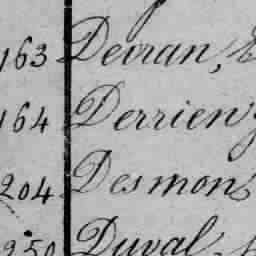 163 Devran,
164 Derrien
204 Desmon
250 Duval